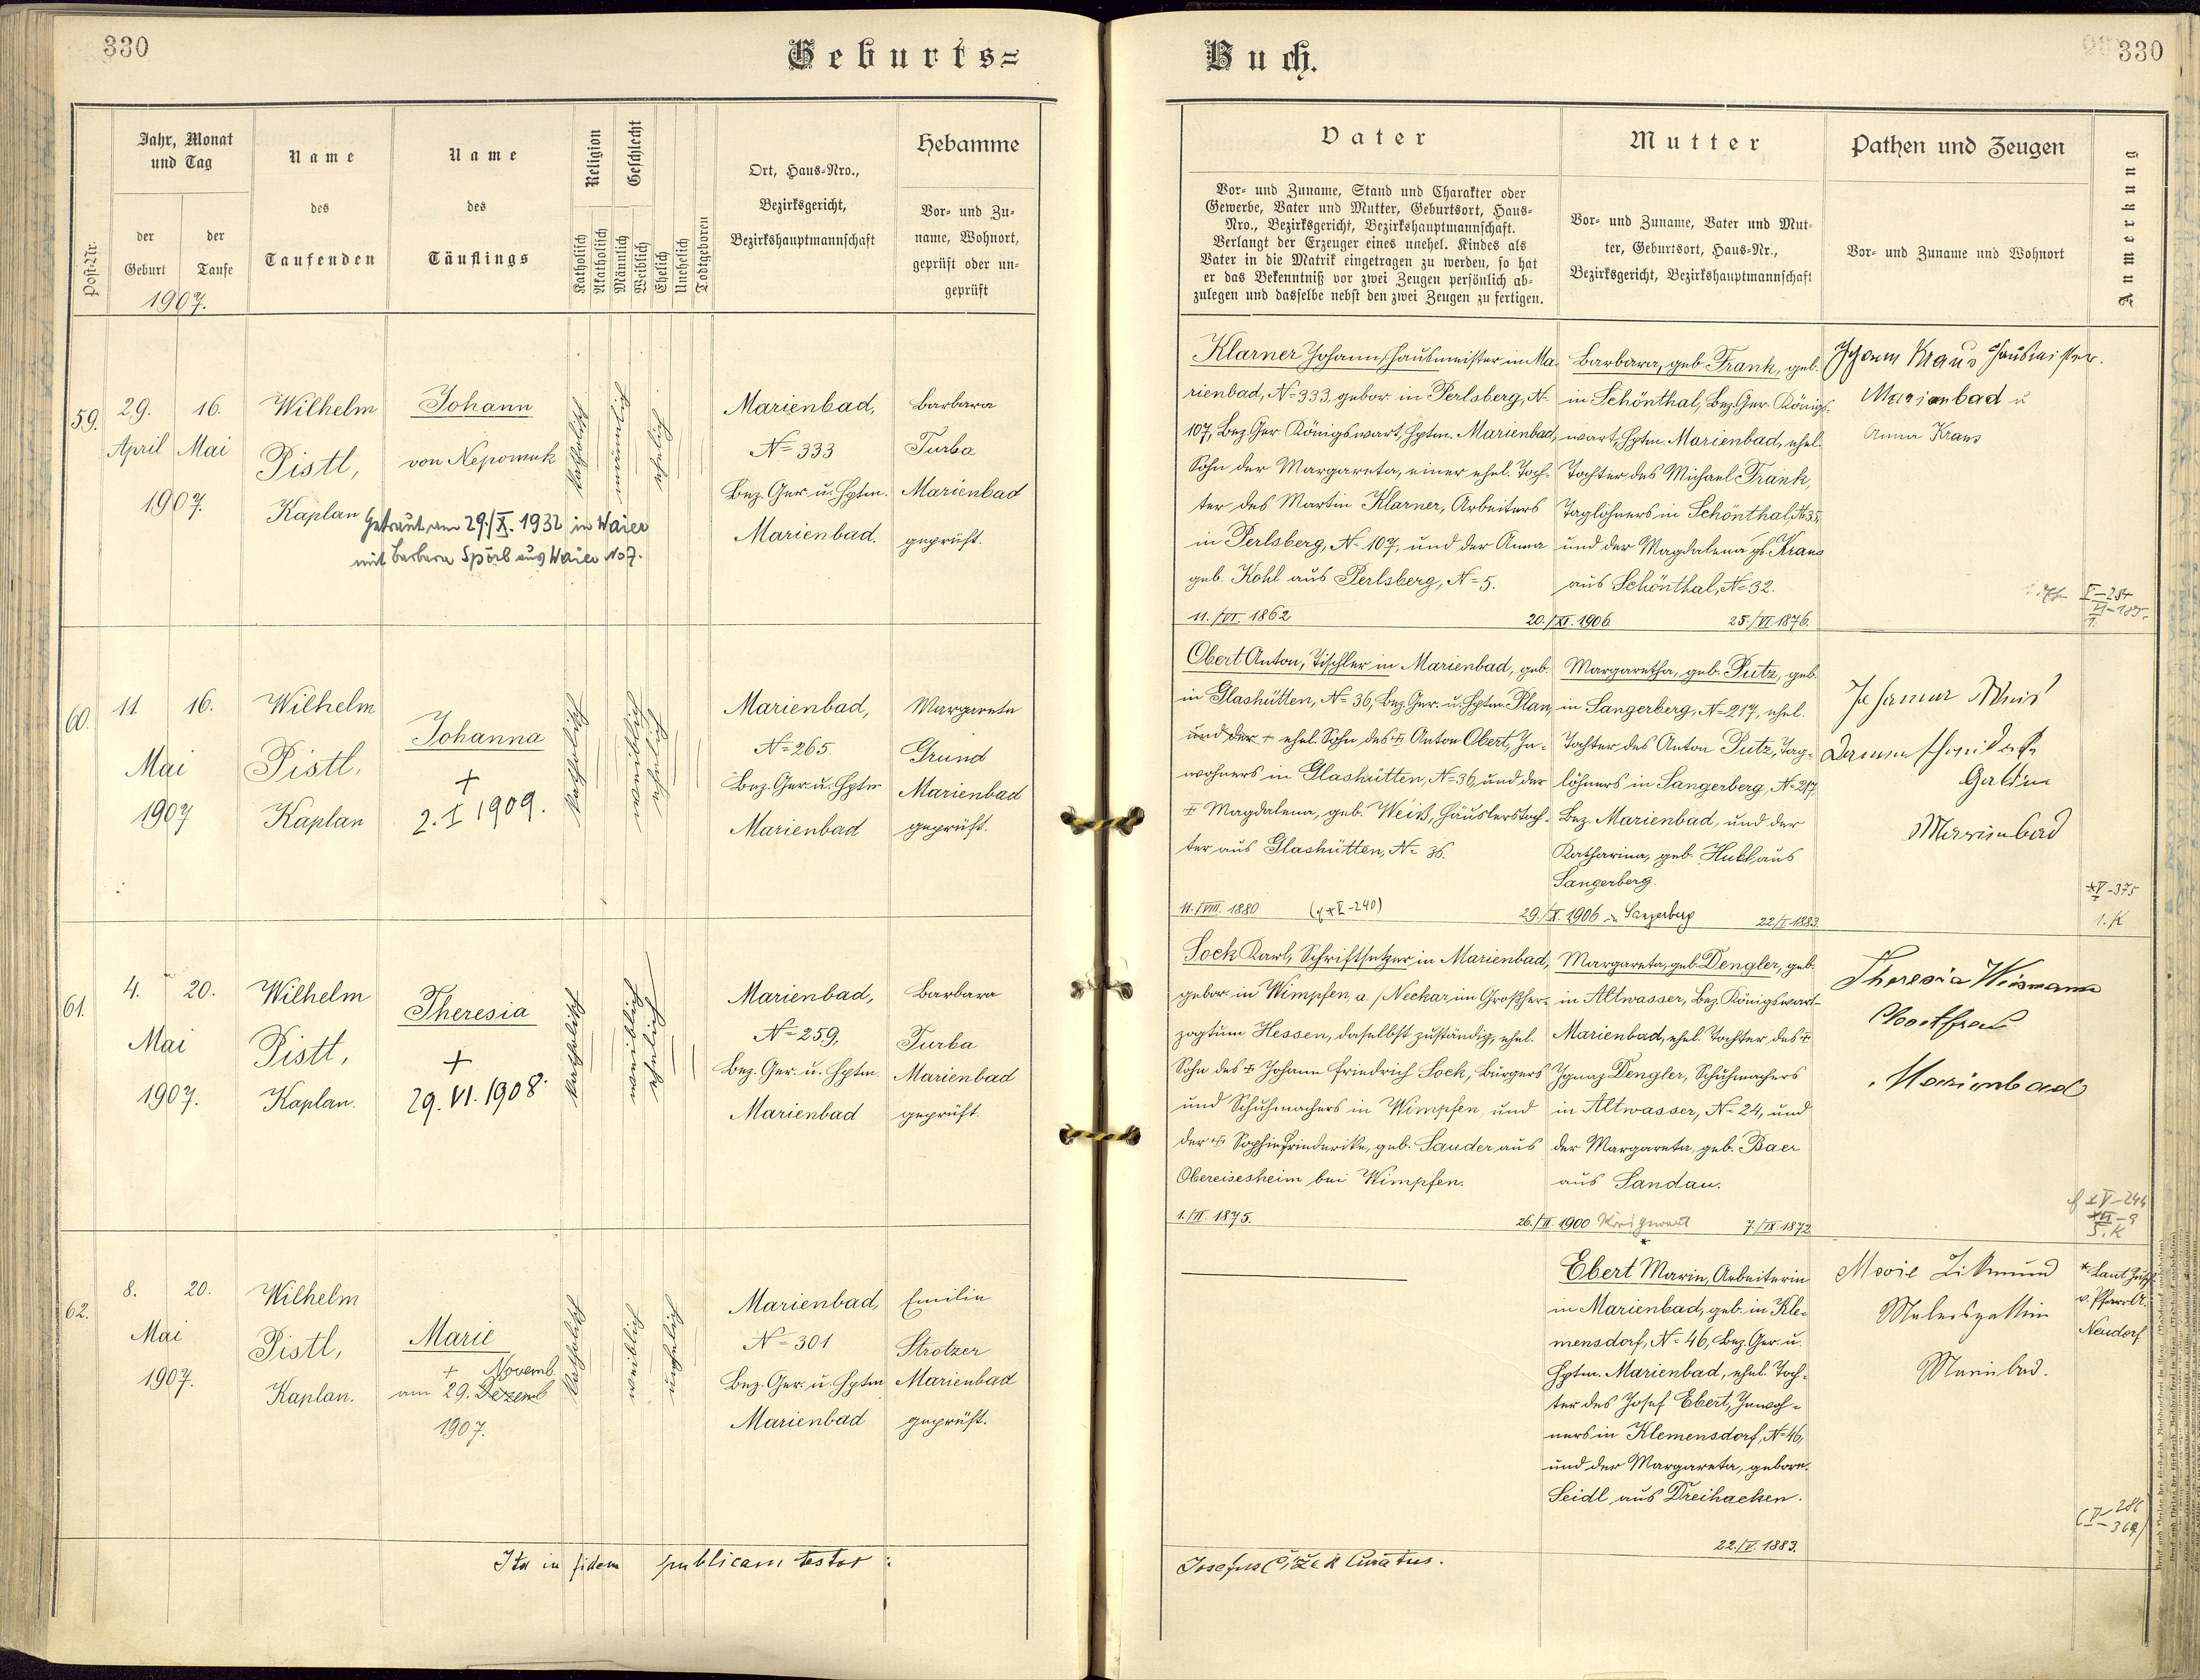 330
Geburts=
Buch.
330
Post-Nr.
Jahr, Monat
und Tag
der
Geburt
der
Taufe
1907.
Name
des
Taufenden
Name
des
Täuflings
Religion
Katholisch
Akatholisch
Geschlecht
Männlich
Weiblich
Ehelich
Unehelich
Todtgeboren
Ort, Haus-Nro.,
Bezirksgericht,
Bezirkshauptmannschaft
Hebamme
Vor- und Zu-
name, Wohnort,
geprüft oder un-
geprüft
Vater
Vor- und Zuname, Stand und Charakter oder
Gewerbe, Vater und Mutter, Geburtsort, Haus-
Nro., Bezirksgericht, Bezirkshauptmannschaft.
Verlangt der Erzeuger eines unehel. Kindes als
Vater in die Matrik eingetragen zu werden, so hat
er das Bekenntniß vor zwei Zeugen persönlich ab-
zulegen und dasselbe nebst den zwei Zeugen zu fertigen.
Mutter
Vor- und Zuname, Vater und Mut-
ter, Geburtsort, Haus-Nr.,
Bezirksgericht, Bezirkshauptmannschaft
Pathen und Zeugen
Vor- und Zuname und Wohnort
Anmerkung
59.
29.
April
16.
Mai
1907.
Wilhelm
Pistl,
Kaplan
Johann
von Nepomuk
Getraut am 29./X. 1932 in Waier
mit Barbara Spörl aus Waier No 7.
katholisch
männlich
ehelich
Marienbad,
N= 333
Bez. Ger. u. Hptm.
Marienbad.
Barbara
Turba
Marienbad
geprüft.
Klarner Johann, Hausmeister in Ma-
rienbad, N= 333, gebor. in Perlsberg, N-
107, Bez. Ger. Königswart, Hptm. Marienbad,
Sohn der Margareta, einer ehel. Toch-
ter des Martin Klarner, Arbeiters
in Perlsberg, N- 107, und der Anna
geb. Kohl aus Perlsberg, N= 5.
11./VI. 1862
20./XI. 1906
Barbara, geb. Frank, geb.
in Schönthal, Bez. Ger. Königs-
wart, Hptm. Marienbad, ehel.
Tochter des Michael Frank,
Taglöhners in Schönthal, N= 35,
und der Magdalena gb. Kraus
aus Schönthal, N= 32.
25./VI. 1876.
Johann Kraus Hausmeister.
Marienbad u
Anna Kraus
60.
11.
16.
Mai
1907
Wilhelm
Pistl,
Kaplan
Johanna
+
2. I 1909.
katholisch
weiblich
ehelich
Marienbad,
N= 265
Bez. Ger. u. Hptm
Marienbad
Margareta
Grund
Marienbad
geprüft.
Obert Anton, Tischler in Marienbad, geb.
in Glashütten, N= 36, Bez. Ger. u. Hptm. Plan,
und der + ehel. Sohn des + Anton Obert, In-
wohners in Glashütten, N= 36, und der
+ Magdalena, geb. Weiß, Häuslerstoch-
ter aus Glashütten, N= 36.
11./VIII. 1880
29./X. 1906 in Sangerberg
Margaretha, geb. Putz, geb.
in Sangerberg, N= 217, ehel.
Tochter des Anton Putz, Tag-
löhners in Sangerberg, N= 217,
Bez. Marienbad, und der
Katharina, geb. Hubl aus
Sangerberg.
22./I. 1883.
Johanna
Gattin
Marienbad
V-375
1. K
61.
4.
20.
Mai
1907.
Wilhelm
Pistl,
Kaplan.
Theresia
+
29. VI. 1908
katholisch
weiblich
ehelich
Marienbad,
N= 259,
Bez. Ger. u. Hptm.
Marienbad
Barbara
Turba
Marienbad
geprüft.
Sock Karl, Schriftsetzer in Marienbad,
gebor. in Wimpfen a./Neckar im Großher-
zogtum Hessen, daselbst zuständig, ehel.
Sohn des + Johann Friedrich Sock, Bürgers
und Schuhmachers in Wimpfen, und
der + Sophie Friederike, geb. Sauder aus
Obereisesheim bei Wimpfen.
1./II. 1875.
26./II. 1900 Königswart
Margareta, geb. Dengler, geb.
in Altwasser, Bez. Königswart-
Marienbad, ehel. Tochter des +
Ignaz Dengler, Schuhmachers
in Altwasser, N= 24, und
der Margareta, geb. Baer
aus Sandau.
7./IX. 1872
Theresia
Marienbad
5. K
62.
8.
20.
Mai
1907.
Wilhelm
Pistl,
Kaplan.
Marie
+ Novemb.
am 29. Dezemb
1907.
katholisch
weiblich
unehelich
Marienbad,
N= 301
Bez. Ger. u. Hptm
Marienbad
Emilie
Strotzer
Marienbad
geprüft.
Ebert Marie, Arbeiterin
in Marienbad, geb. in Kle-
mensdorf, N= 46, Bez. Ger. u.
Hptm. Marienbad, ehel. Toch-
ter des Josef Ebert, Inwoh-
ners in Klemensdorf, N= 46,
und der Margareta, gebore.
Seidl aus Dreihacken.
22./V. 1883.
Marie Zikmund
Malersgattin
Marienbad.
* Laut
v. PfarrA.
Neudorf
Ita in fidem publicam testor:
Josefus Čížek Curatus.